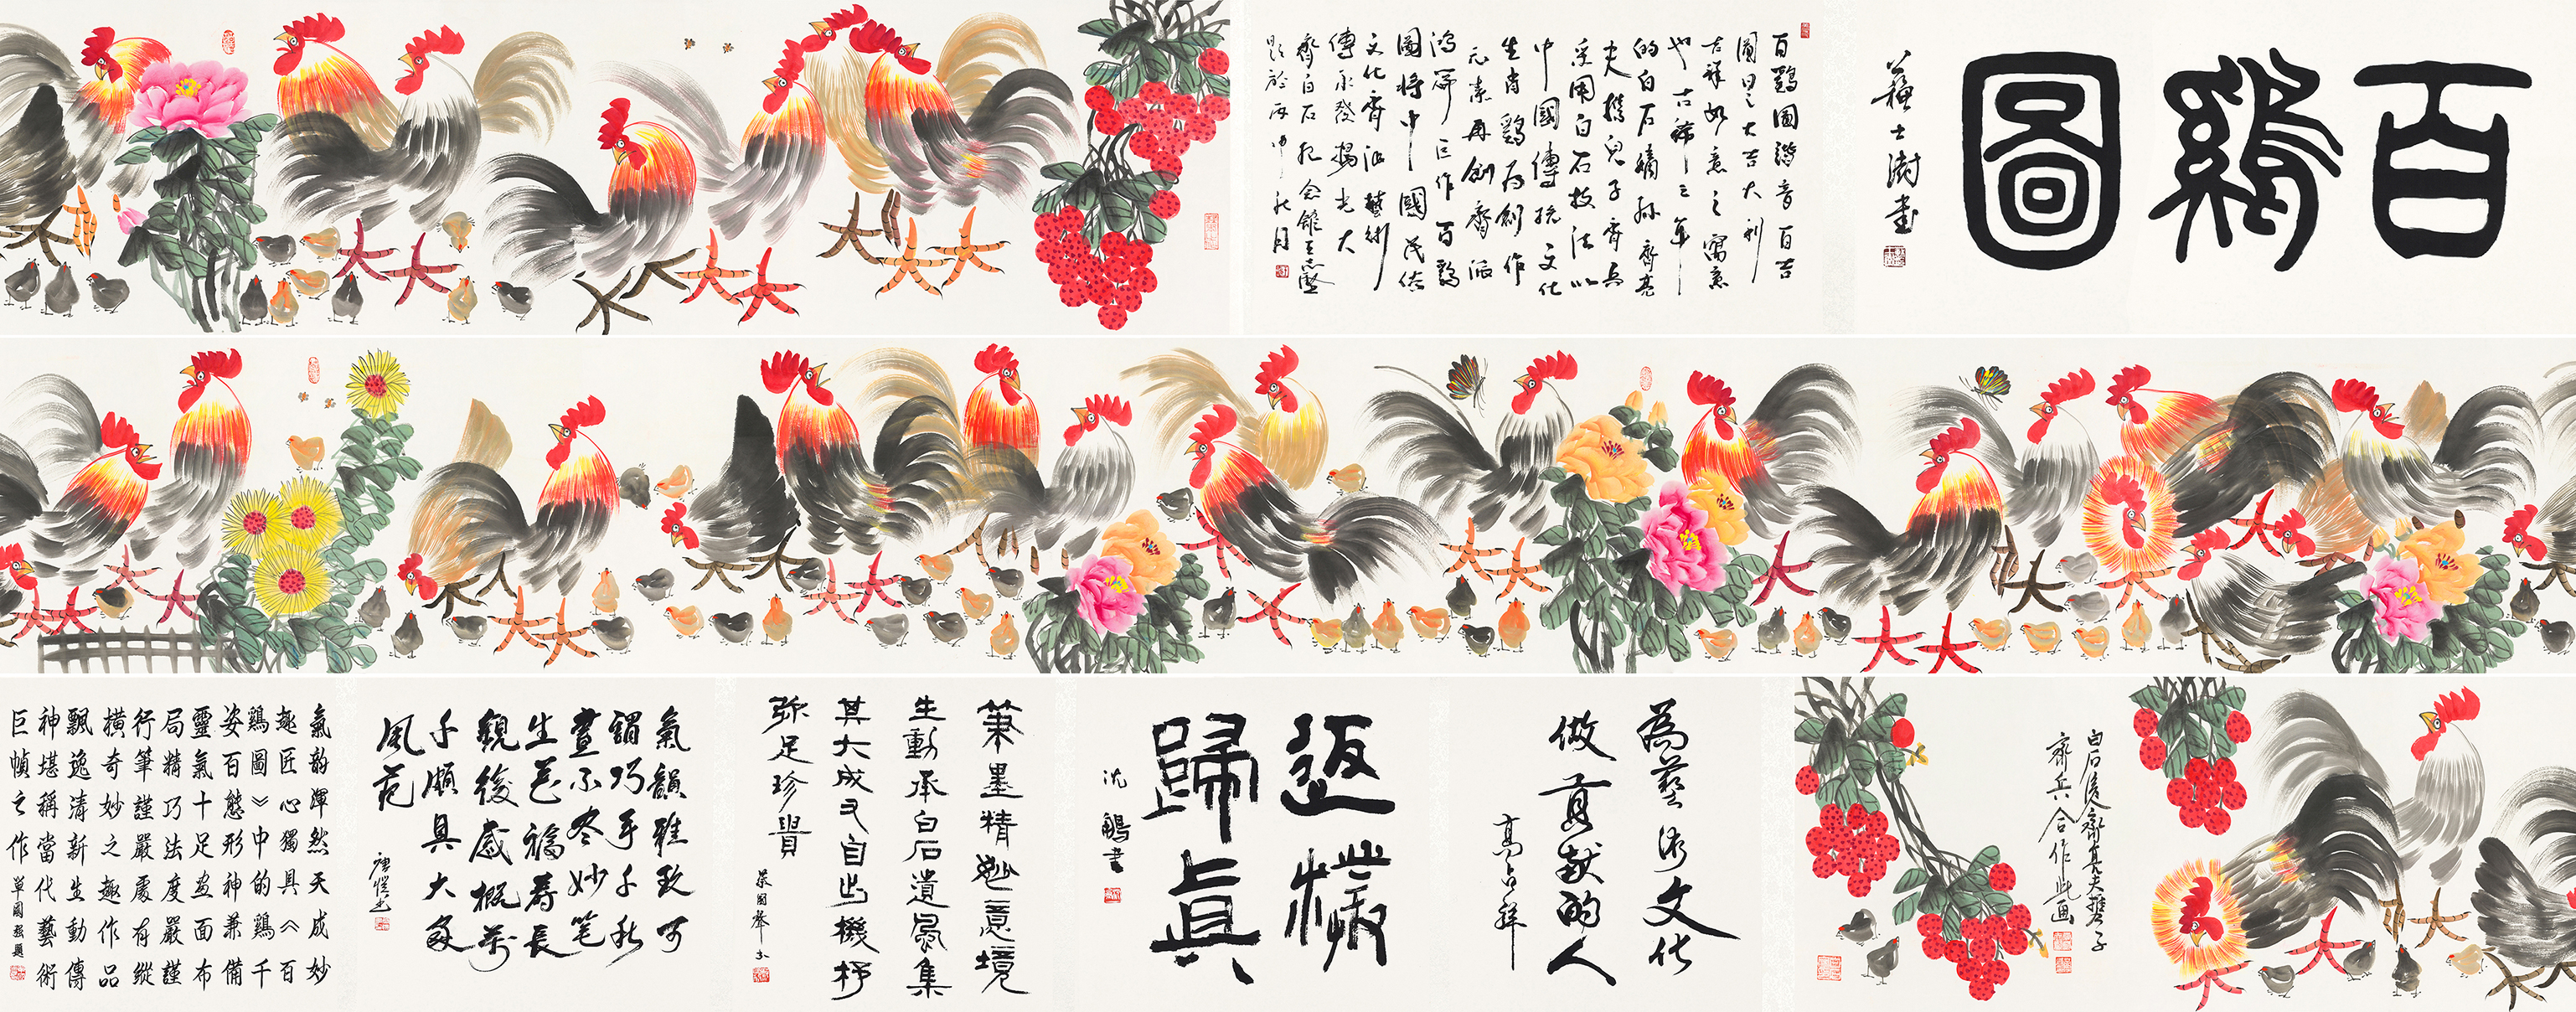 百鷄圖
蘇士澍書
百鷄圖諧音百吉
圖曰之大吉大利
吉祥如意之寓意
也古稀之年
的白石嫡孫齊亮
夫攜兒子齊兵
采用白石技法以
中國傳統文化
生肖鷄爲創作
元素再創齊派
鴻篇巨作百鷄
圖將中國民俗
文化齊派藝術
傳承發揚光大
齊白石紀念館王志堅
題於丙申秋月
白石後人齊亮夫攜子
齊兵合作此画
為藝術文化
做貢献的人
高占祥
返樸
歸真
沈鵬書
筆墨精妙意境
生動承白石遺風集
其大成又自出機杼
弥足珍貴
蔡國聲書
氣韻雅致可
謂巧手千秋
畫不冬妙笔
生花福壽長
觀後感概萬
千頗具大家
風范
唐愷書
氣韵渾然天成妙
趣匠心獨具《百
鷄圖》中的鷄千
姿百態形神兼備
靈氣十足畫面布
局精巧法度嚴謹
行筆謹嚴處有縱
橫奇妙之趣作品
飄逸清新生動傳
神堪稱當代藝術
巨幀之作
單國强題